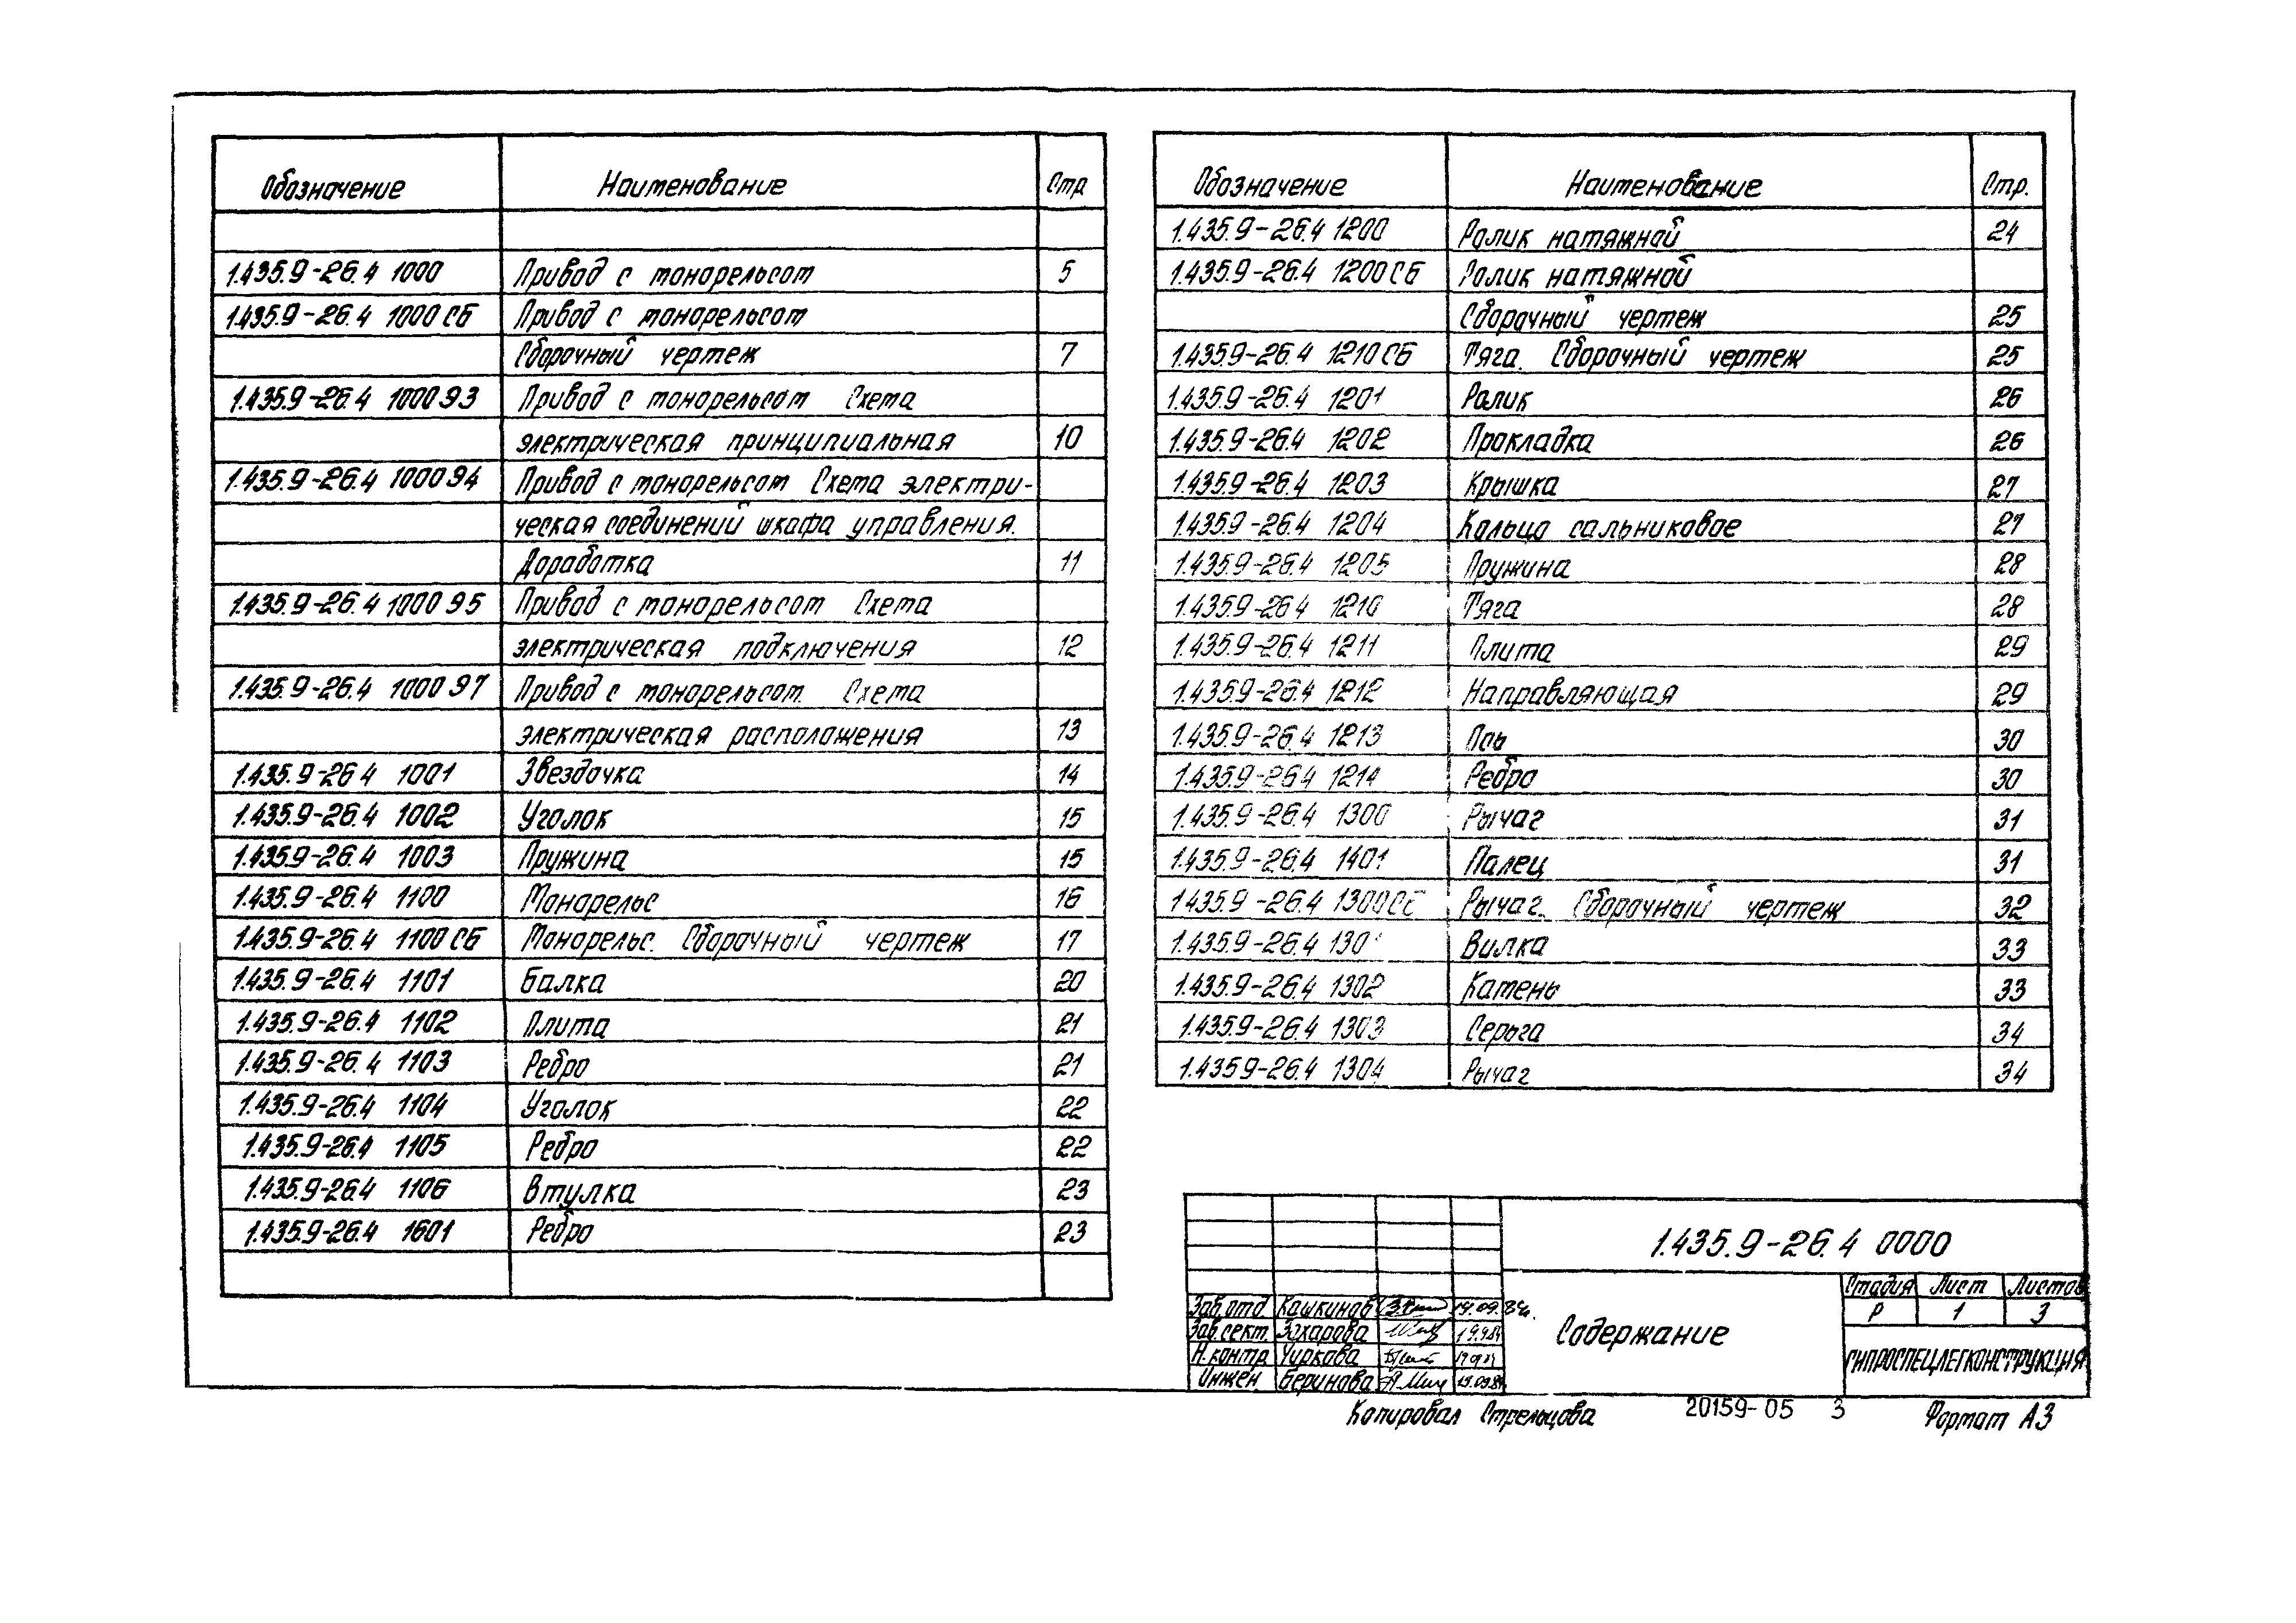 Обозначение Наименование Стр
1.435.9-26.4 1000 Привод с монорельсом 5
1.435.9-26.4 1000 СБ Привод с монорельсом
Сборочный чертеж 7
1.435.9-26.4 1000 Э3 Привод с монорельсом Схема
электрическая принципиальная 10
1.435.9-26.4 1000 Э4 Привод с монорельсом Схема электри-
ческая соединений шкафа управления.
Доработка 11
1.435.9-26.4 1000 Э5 Привод с монорельсом Схема
электрическая подключения 12
1.435.9-26.4 1000 Э7 Привод с монорельсом. Схема
электрическая расположения 13
1.435.9-26.4 1001 Звездочка 14
1.435.9-26.4 1002 Уголок 15
1.435.9-26.4 1003 Пружина 15
1.435.9-26.4 1100 Монорельс 16
1.435.9-26.4 1100 СБ Монорельс. Сборочный чертеж 17
1.435.9-26.4 1101 Балка 20
1.435.9-26.4 1102 Плита 21
1.435.9-26.4 1103 Ребро 21
1.435.9-26.4 1104 Уголок 22
1.435.9-26.4 1105 Ребро 22
1.435.9-26.4 1106 Втулка 23
1.435.9-26.4 1601 Ребро 23
Обозначение Наименование Стр.
1.435.9-26.4 1200 Ролик натяжной 24
1.435.9-26.4 1200 СБ Ролик натяжной
Сборочный чертеж 25
1.435.9-26.4 1210 СБ Тяга. Сборочный чертеж 25
1.435.9-26.4 1201 Ролик 26
1.435.9-26.4 1202 Прокладка 26
1.435.9-26.4 1203 Крышка 27
1.435.9-26.4 1204 Кольцо сальниковое 27
1.435.9-26.4 1205 Пружина 28
1.435.9-26.4 1210 Тяга 28
1.435.9-26.4 1211 Плита 29
1.435.9-26.4 1212 Направляющая 29
1.435.9-26.4 1213 Ось 30
1.435.9-26.4 1214 Ребро 30
1.435.9-26.4 1300 Рычаг 31
1.435.9-26.4 1401 Палец 31
1.435.9-26.4 1300 СБ Рычаг. Сборочный чертеж 32
1.435.9-26.4 1301 Вилка 33
1.435.9-26.4 1302 Камень 33
1.435.9-26.4 1303 Серьга 34
1.435.9-26.4 1304 Рычаг 34
1.435.9-26.4 0000
Зав.отд. Кашкинов 19.09.84.
Зав.сект. Захарова 19.9.84
Н.контр Чиркова
Инжен. Беринова 19.09.84
Содержание
Стадия Лист Листов
Р 1 3
ГИПРОСПЕЦЛЕГКОНСТРУКЦИЯ
Копировал Стрельцова 20159-05 3 Формат А3